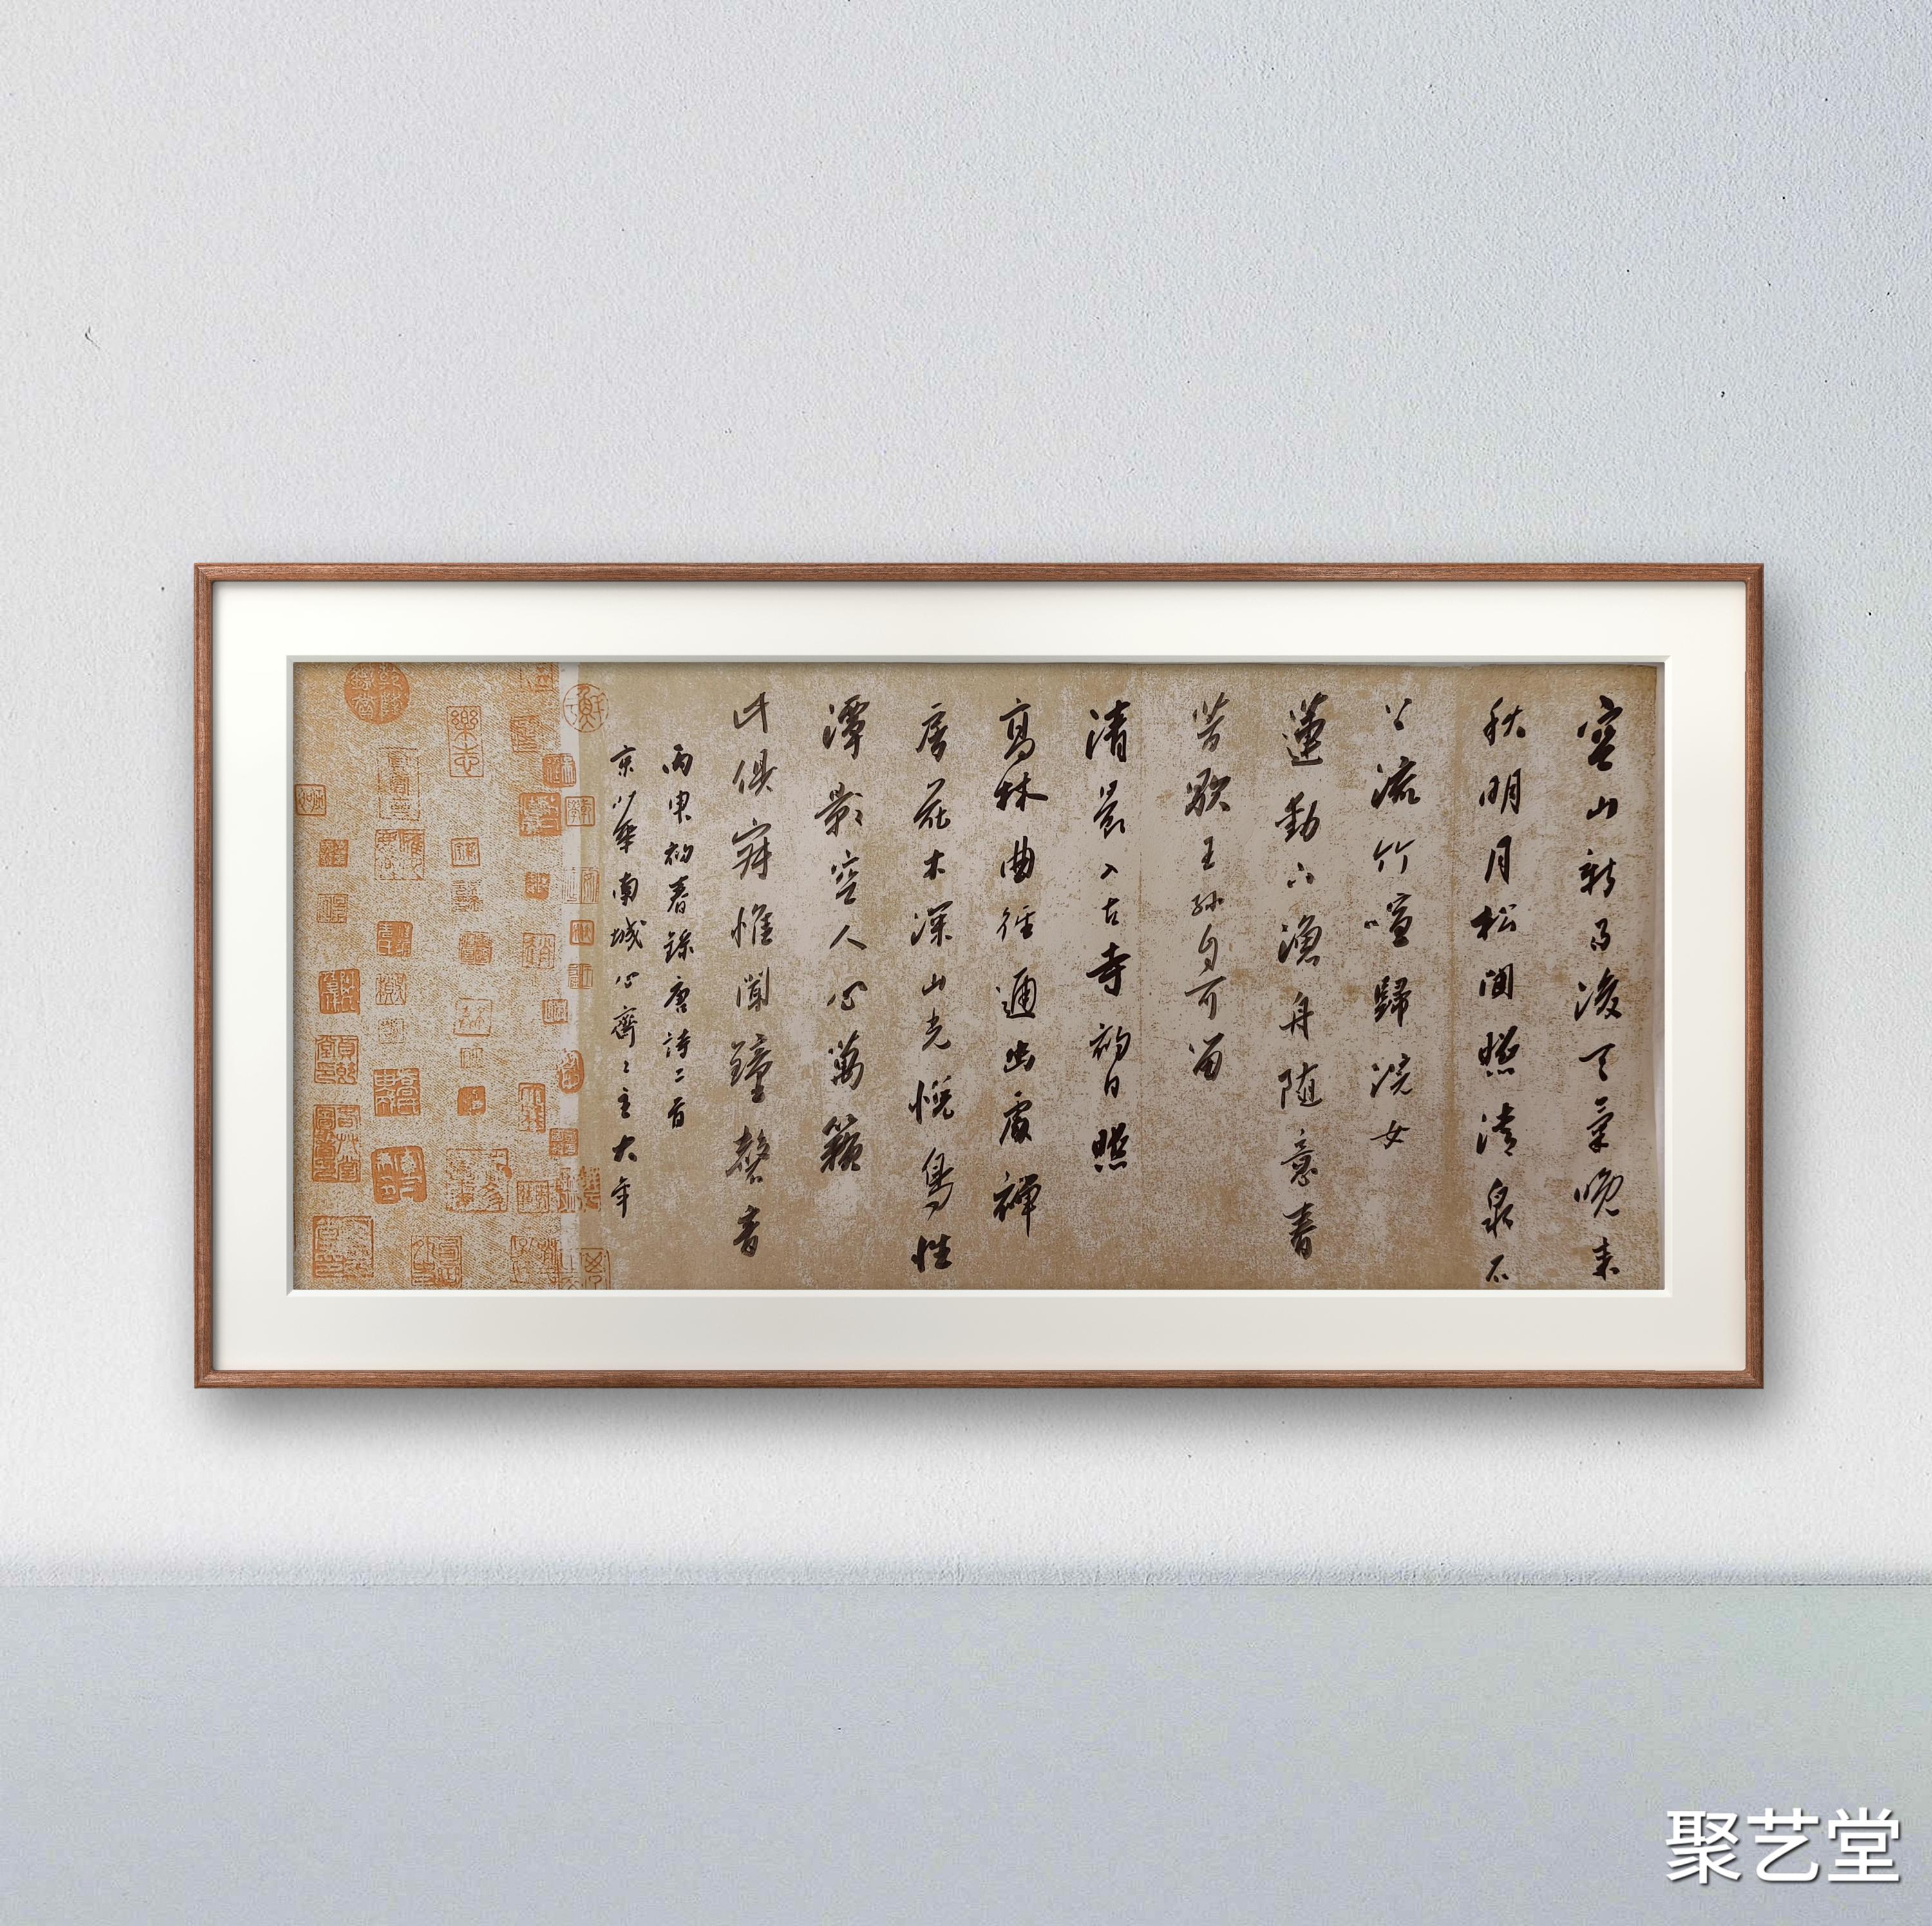 空山新雨後天氣晚來
秋明月松間照清泉石
上流竹喧歸浣女
蓮動下漁舟随意春
芳歇王孫自可留
清晨入古寺初日照
高林曲徑通幽處禪
房花木深山光悅鳥性
潭影空人心萬籟
此俱寂惟聞鐘磬音
丙申初春錄唐詩二首
京華南城心齋主大年
聚艺堂